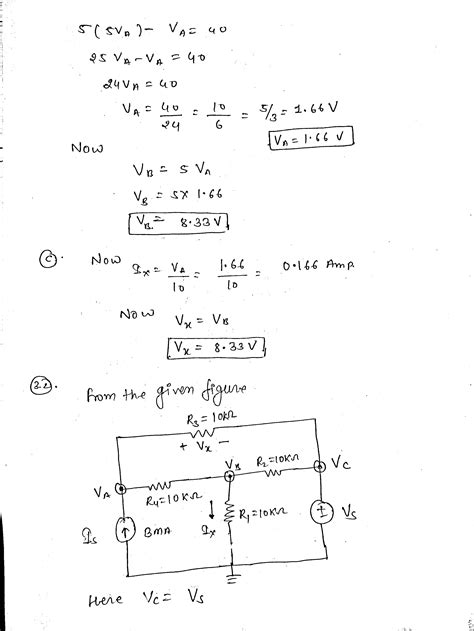 5(5VA) - VA = 40
25VA - VA = 40
24VA = 40
VA = 40/24 = 10/6 = 5/3 = 1.66 V
VA = 1.66 V
Now
VB = 5 VA
VB = 5x 1.66
VB = 8.33 V
(c). Now Ix = VA/10 = 1.66/10 = 0.166 Amp
Now Vx = VB
Vx = 8.33 V
(3.2). from the given figure
R3 = 10KΩ
+ Vx -
VA R4=10KΩ VB R2=10KΩ VC
Is 8MA Ix R1=10KΩ Vs
Here VC = Vs